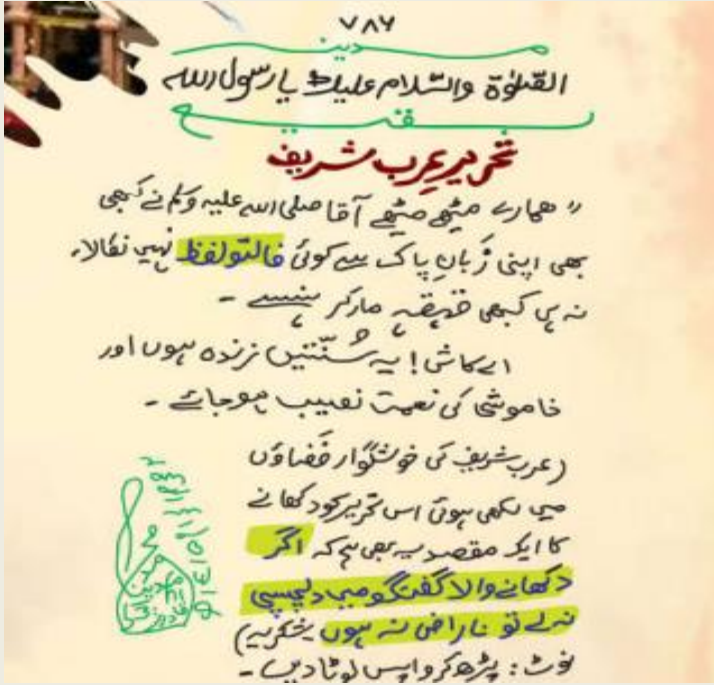 ۷۸۶
مدینہ
الصَّلوٰۃ والسَّلام علیك یا رسول اللہ
بقیع
تحریرِ عرب شریف
"ہمارے میٹھے میٹھے آقا صلی اللہ علیہ وسلم نے کبھی
بھی اپنی زَبانِ پاک سے کوئی فالتو لفظ نہیں نکالا،
نہ ہی کبھی قہقہہ مار کر ہنسے ۔
اے کاش! یہ سُنّتیں زندہ ہوں اور
خاموشی کی نعمت نصیب ہوجائے ۔
(عرب شریف کی خوشگوار فَضاؤں
میں لکھی ہوئی اس تحریر کو دکھانے
کا ایک مقصد یہ بھی ہے کہ اگر
دکھانے والا گفتگو میں دلچسپی
نہ لے تو ناراض نہ ہوں بشکریہ)
نوٹ: پڑھ کر واپس لوٹا دیں ۔